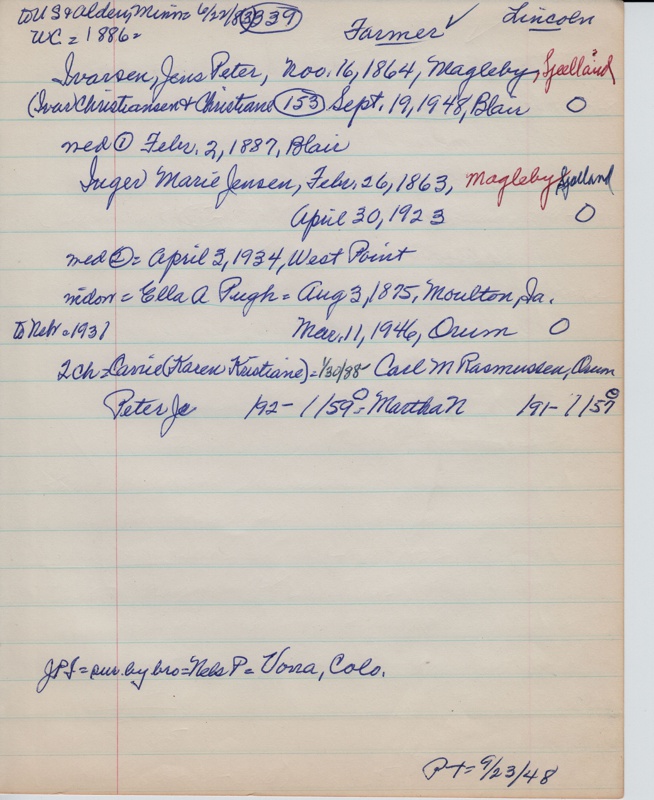 to US & Alden, Minn = 6/22/83 339 Farmer ✓ Lincoln
WC = 1886 =
Ivarsen, Jens Peter, Nov. 16, 1864, Magleby, Sjelland
(Ivar Christiansen & Christiane 153 Sept. 19, 1948, Blair O
med ① Febr. 2, 1887, Blair
Inger Marie Jensen, Febr. 26, 1863, Magleby Sjelland
April 30, 1923 O
med ② = April 3, 1934, West Point
widow = Ella A Pugh = Aug 3, 1875, Moulton, Ia.
to Nebr = 1931 Mar. 11, 1946, Orum O
2 ch = Carrie (Karen Kristiane) = 1/30/88 - Carl M Rasmussen, Orum
Peter Jc 192 - 1/59 O = Martha N 191 - 1/57 O
JPI = sur. by bro = Nels P = Vona, Colo.
P-t = 9/23/48